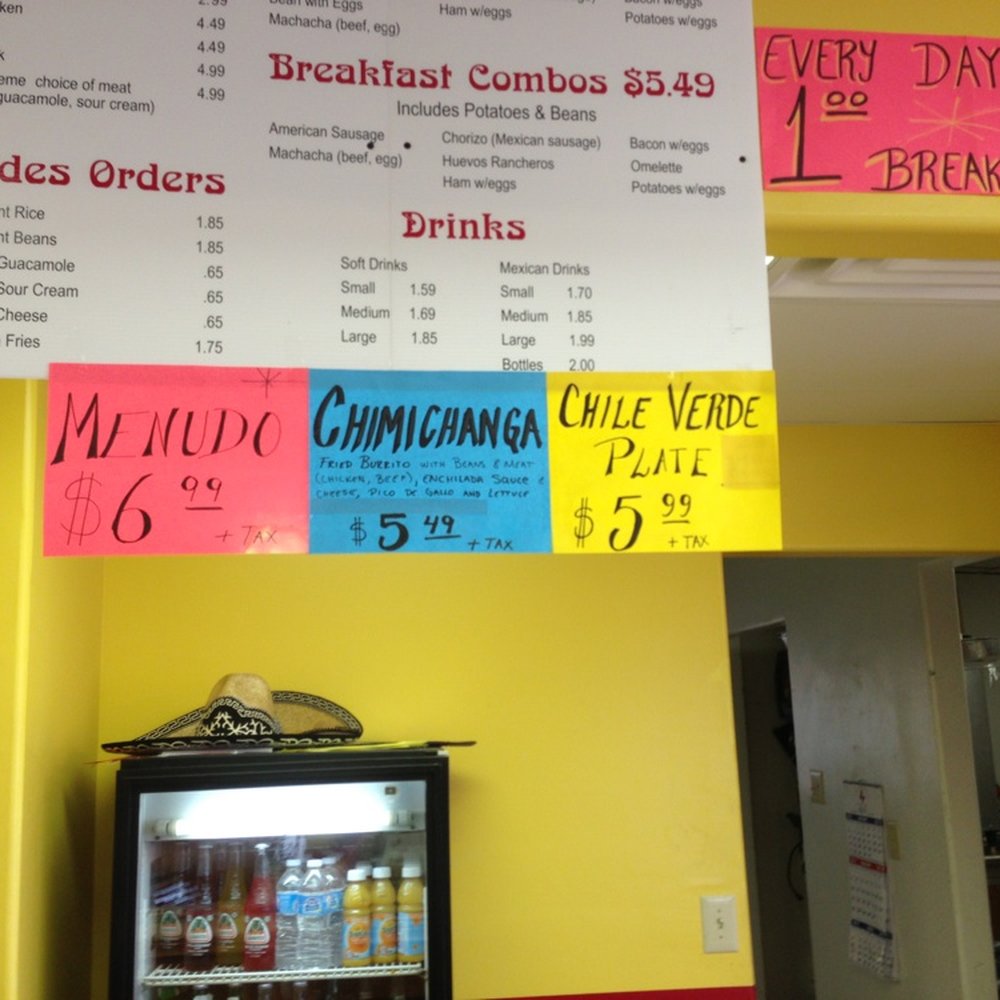 4.49
4.49
4.99
eme choice of meat
guacamole, sour cream) 4.99
des Orders
nt Rice 1.85
nt Beans 1.85
Guacamole .65
Sour Cream .65
Cheese .65
Fries 1.75
Machacha (beef, egg)
Ham w/eggs
Potatoes w/eggs
Breakfast Combos $5.49
Includes Potatoes & Beans
American Sausage
Machacha (beef, egg)
Chorizo (Mexican sausage)
Huevos Rancheros
Ham w/eggs
Bacon w/eggs
Omelette
Potatoes w/eggs
Drinks
Soft Drinks
Small 1.59
Medium 1.69
Large 1.85
Mexican Drinks
Small 1.70
Medium 1.85
Large 1.99
Bottles 2.00
EVERY DAY
1.00
BREAK
MENUDO
$6.99
+ TAX
CHIMICHANGA
FRIED BURRITO WITH BEANS & MEAT
(CHICKEN, BEEF), ENCHILADA SAUCE &
CHEESE, PICO DE GALLO AND LETTUCE
$5.49
+ TAX
CHILE VERDE
PLATE
$5.99
+ TAX